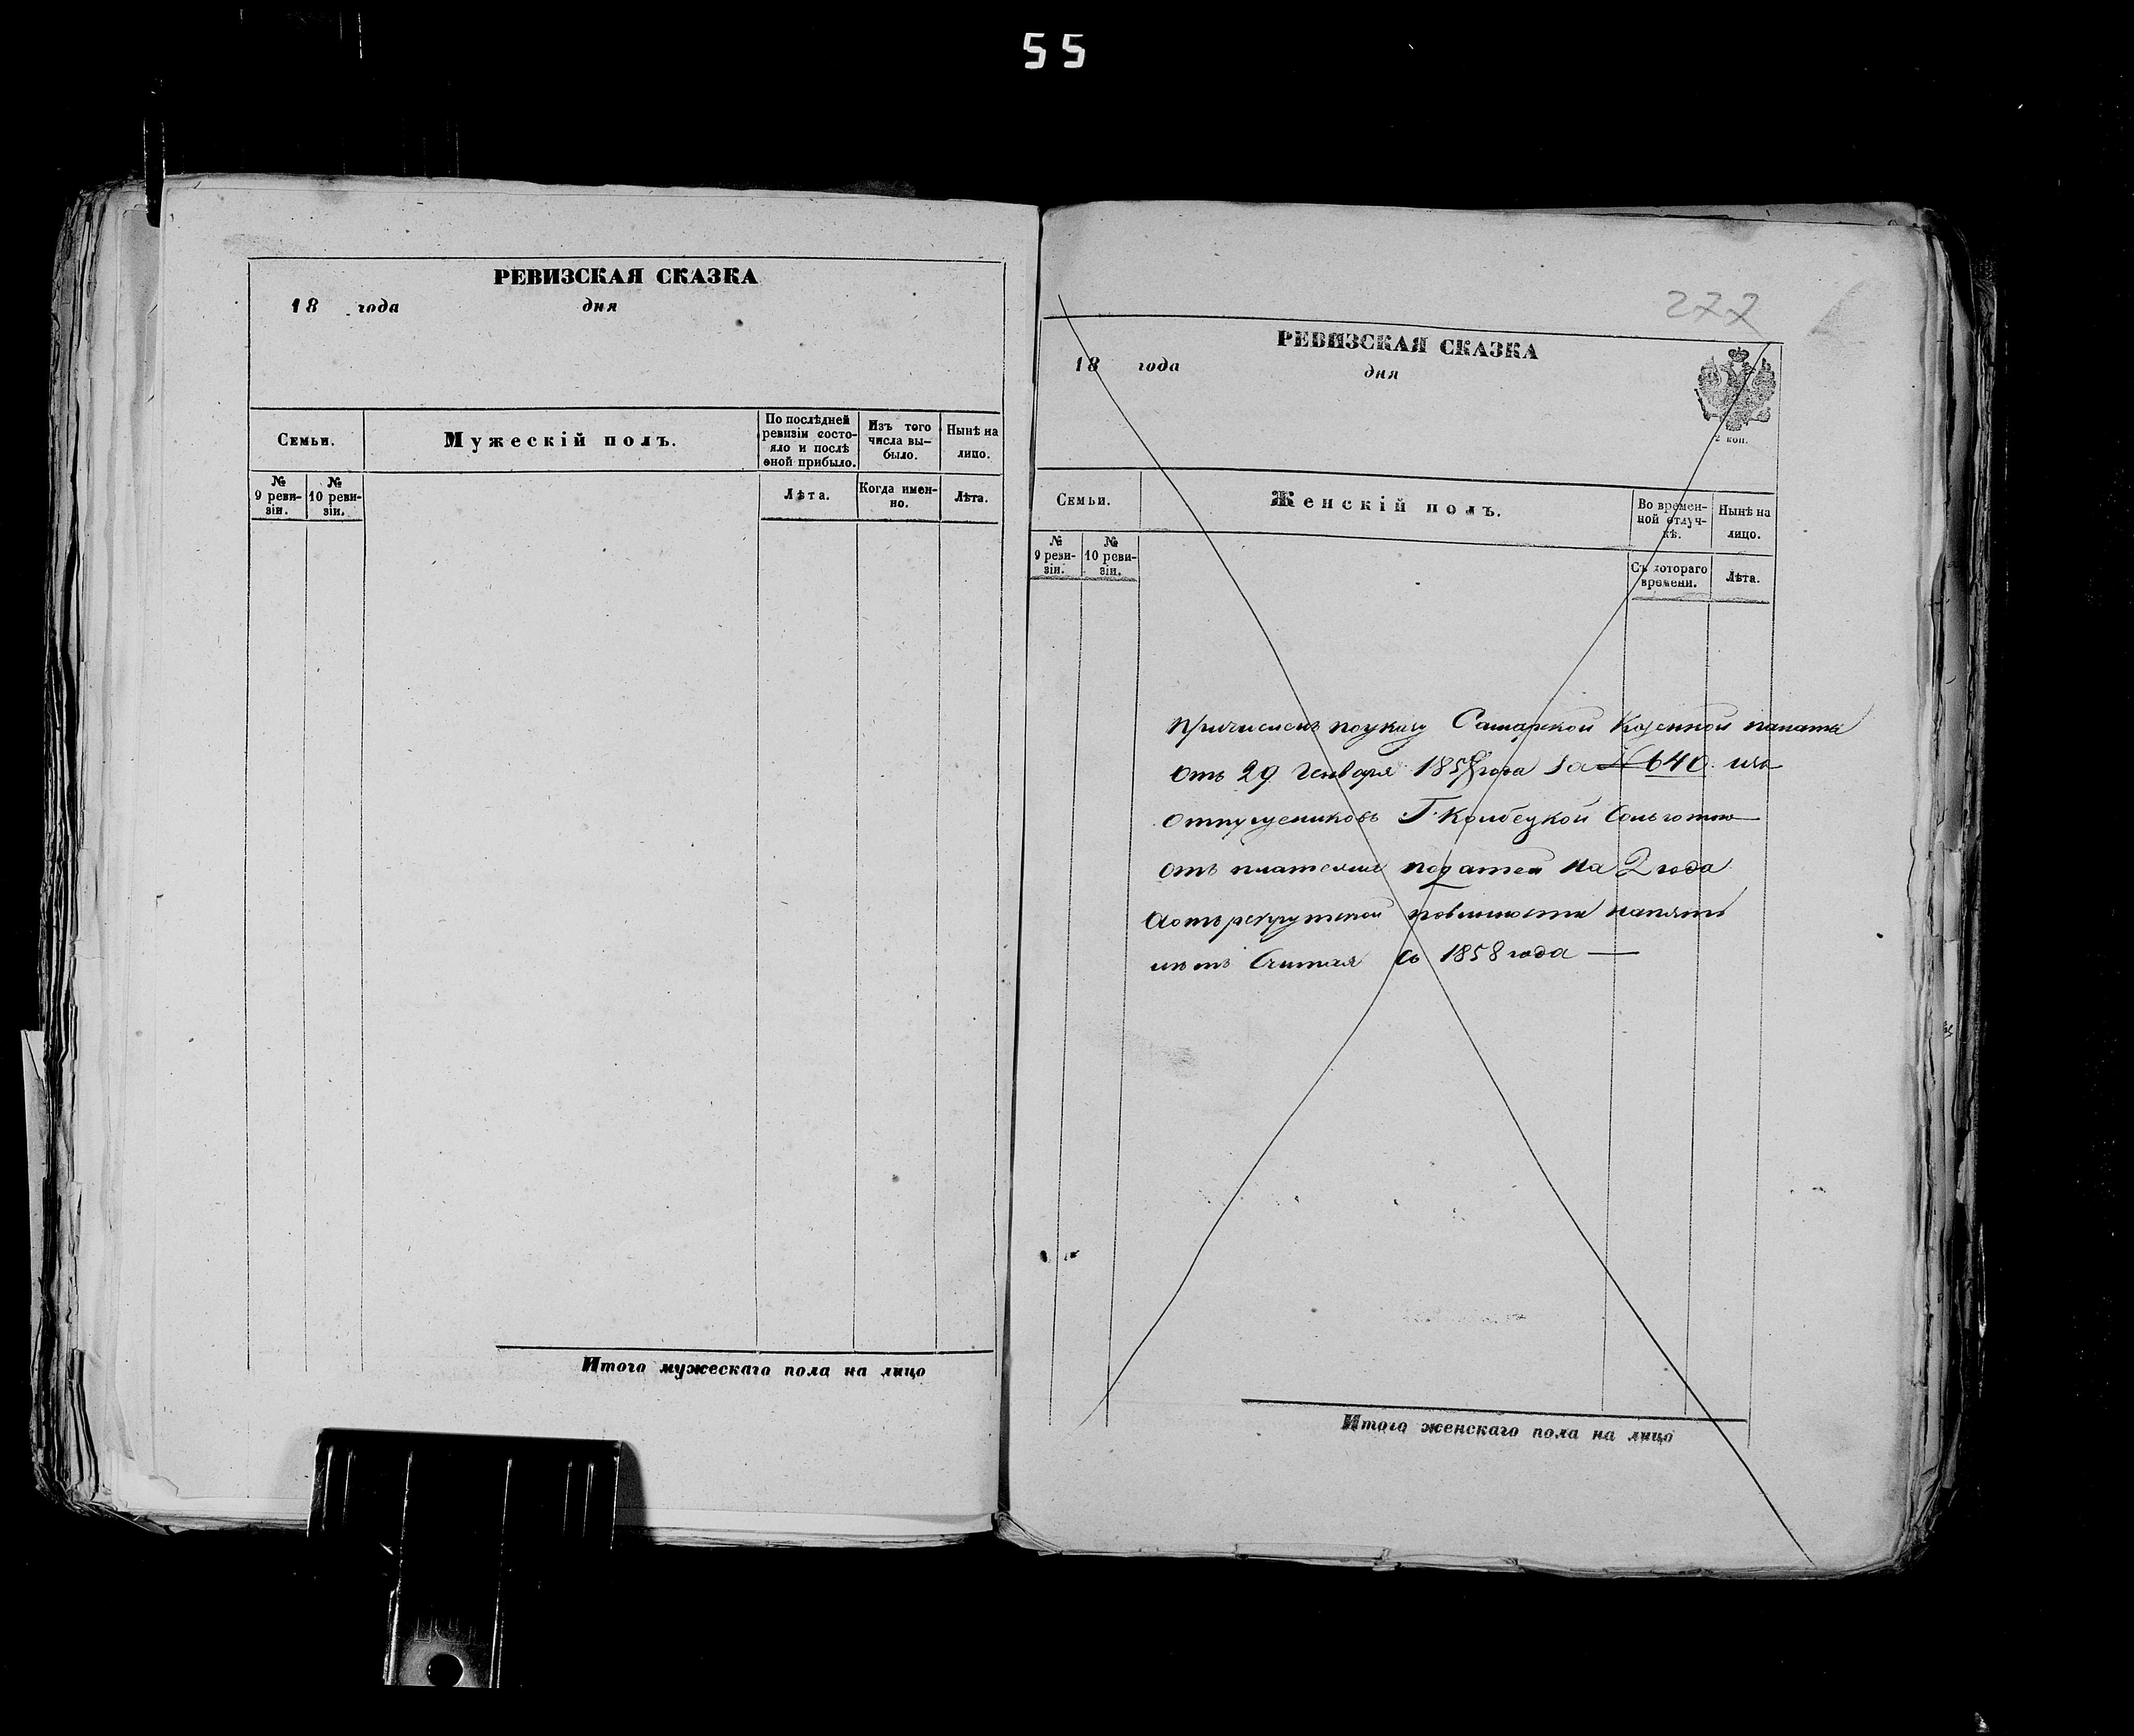 55
РЕВИЗСКАЯ СКАЗКА
18 года дня
Семьи.
Мужескій полъ.
По послѣдней ревизіи состо-
яло и послѣ оной прибыло.
Изъ того числа вы-
было.
Нынѣ на лицо.
№ 9 реви-
зіи.
№ 10 реви-
зіи.
Лѣта.
Когда имен-
но.
Лѣта.
Итого мужескаго пола на лицо
277
РЕВИЗСКАЯ СКАЗКА
18 года дня
2 коп.
Семьи.
Женскій полъ.
Во времен-
ной отлуч-
кѣ.
Нынѣ на лицо.
№ 9 реви-
зіи.
№ 10 реви-
зіи.
Съ котораго времени.
Лѣта.
Причисленъ поуказу Самарской Казенной палаты
отъ 29 Генваря 1858 года за № 640 изъ
отпущениковъ Г. сольготою
отъ платежа податей на 2 года
аотъ рекрутской повинности напять
лѣтъ Считая Съ 1858 года —
Итого женскаго пола на лицо